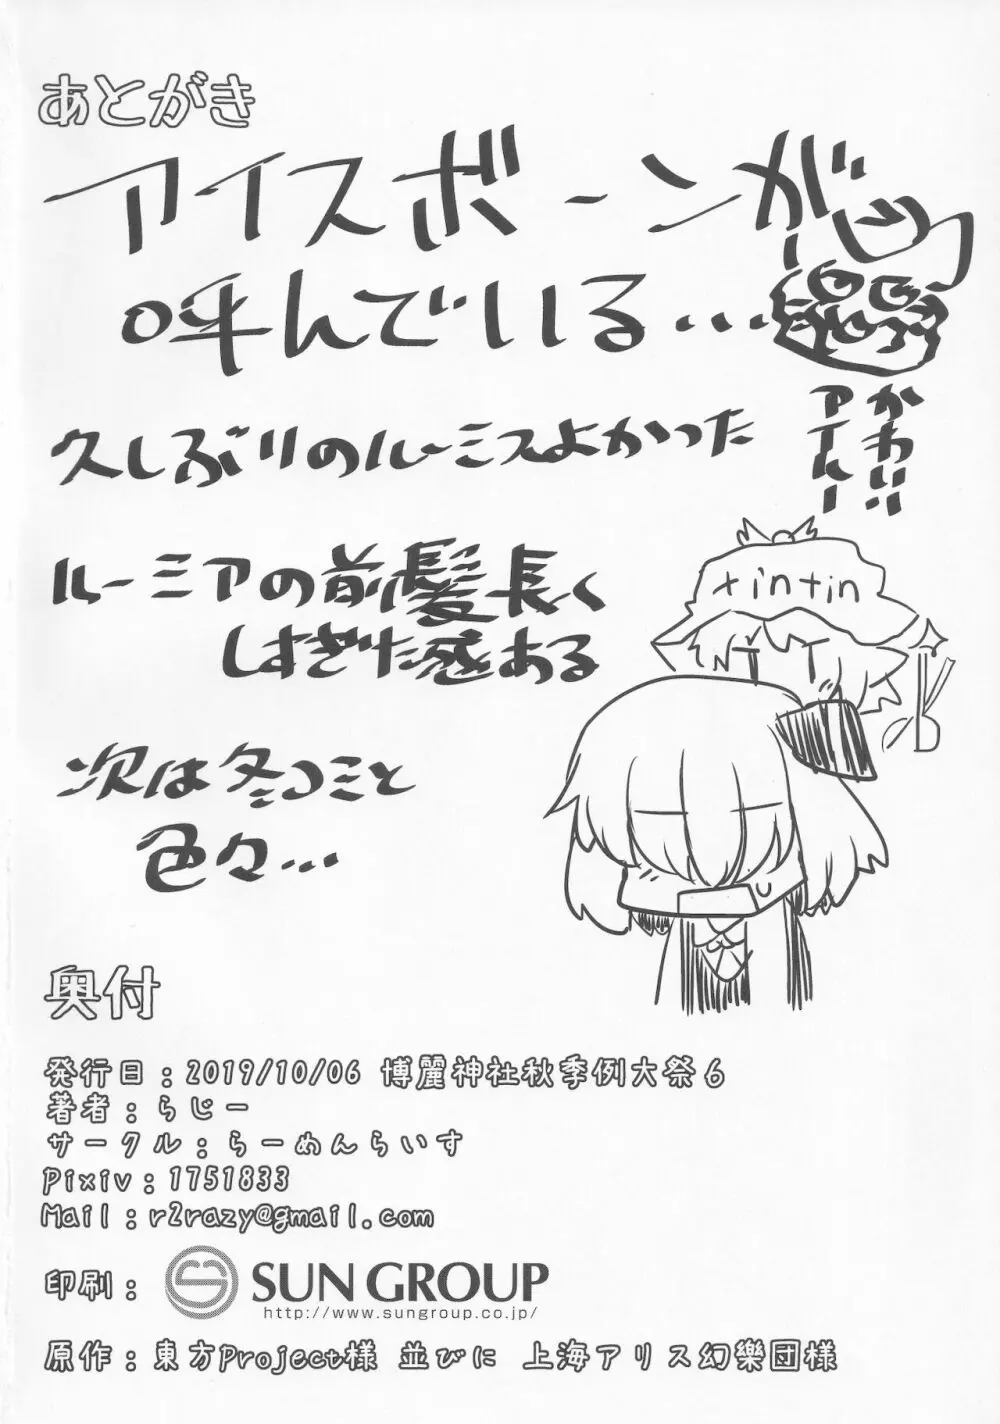 あとがき
アイスボーンが
呼んでいる…
かわいい
アイルー
久しぶりのルーミスよかった
ルーミアの前髪長く
しすぎた感ある
tintin
次は冬コミと
色々…
奥付
発行日：2019/10/06 博麗神社秋季例大祭6
著者：らじー
サークル：らーめんらいす
Pixiv：1751833
Mail：r2razy@gmail.com
印刷：SUN GROUP
http://www.sungroup.co.jp/
原作：東方Project様 並びに 上海アリス幻樂団様